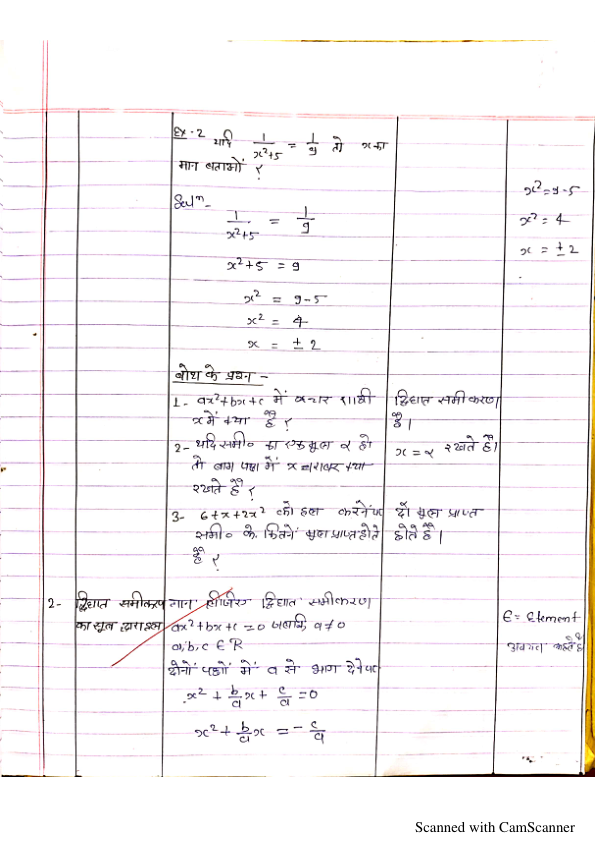 Ex-2 यदि 1/x²+5 = 1/9 तो x का
मान बताओं ?
Solⁿ-
1/x²+5 = 1/9
x²+5 = 9
x² = 9-5
x² = 4
x = ± 2
x²=9-5
x² = 4
x = ± 2
बोध के प्रश्न -
1- ax²+bx+c में
x में क्या है ?
द्विघात समीकरण
है।
2- यदि समी० का एक मूल α हो
तो वाम पक्ष में x बराबर क्या
रखते हैं ?
x = α रखते हैं।
3- 6+x+2x² को हल करने पर
समी० के कितने मूल प्राप्त होते
हैं ?
दो मूल प्राप्त
होते हैं।
2- द्विघात समीकरण
का सूत्र द्वारा हल
मान लीजिए द्विघात समीकरण
ax²+bx+c=0 जबकि a≠0
a,b,c ∈ R
दोनों पक्षों में a से भाग देने पर
x² + b/a x + c/a = 0
x² + b/a x = - c/a
∈ = Element
अवयव कहते है
Scanned with CamScanner